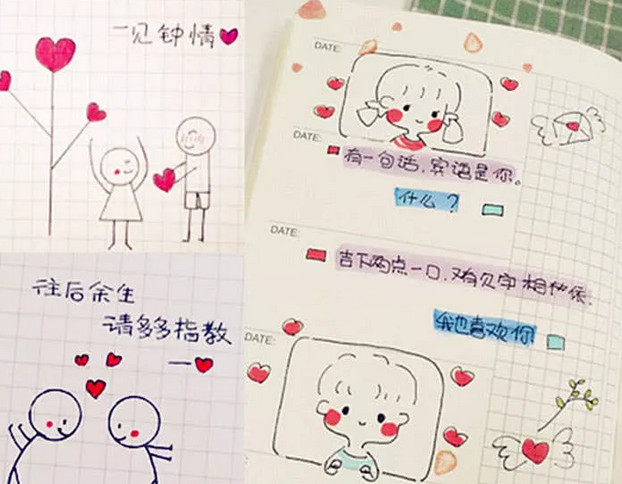 一见钟情
往后余生
请多多指教
DATE:
DATE:
有一句话,宾语是你。
什么?
DATE:
吉下两点一口,又有欠字相伴依.
我也喜欢你
DATE: